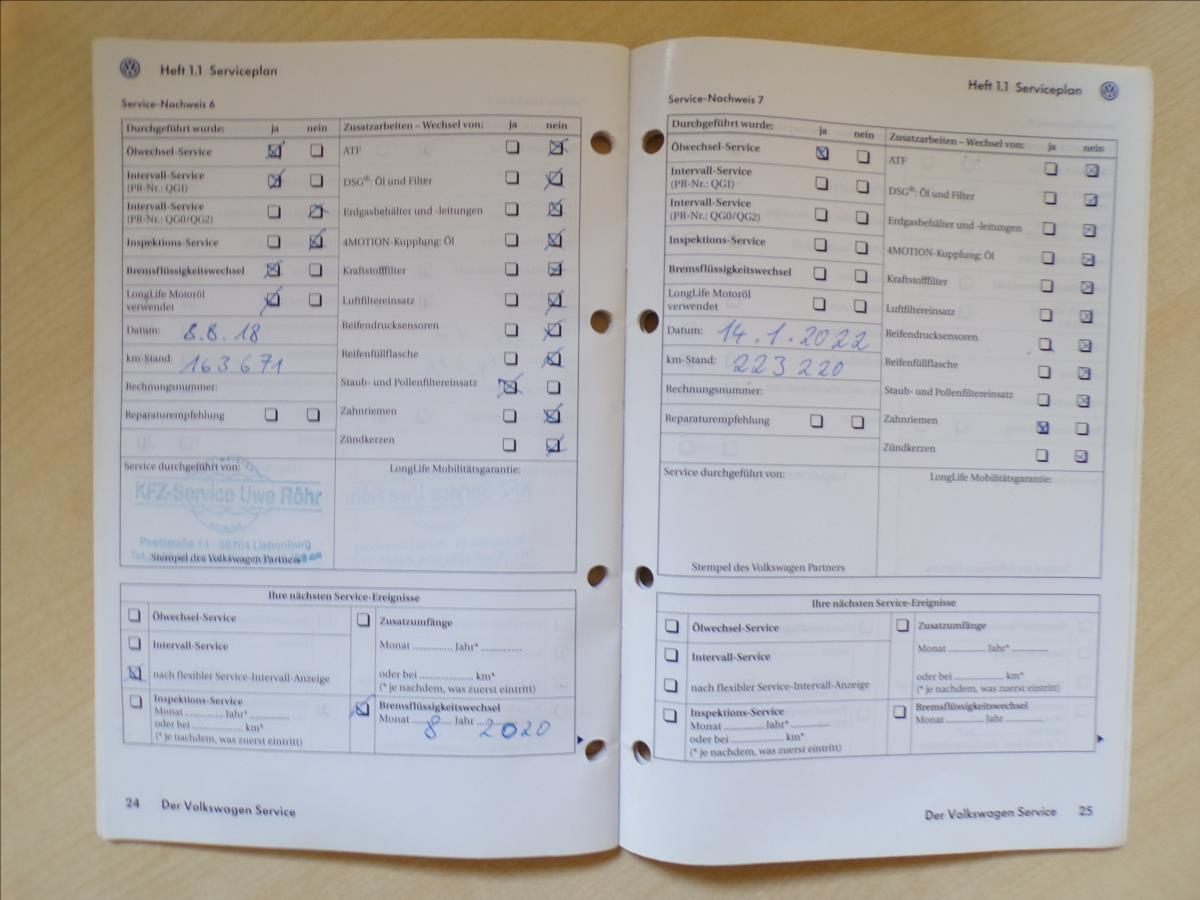 Heft 1.1 Serviceplan
Service-Nachweis 6
Durchgeführt wurde: ja nein
Ölwechsel-Service
Intervall-Service
(PR-Nr.: QGI)
Intervall-Service
(PR-Nr.: QG0/QG2)
Inspektions-Service
Bremsflüssigkeitswechsel
LongLife Motoröl
verwendet
Datum: 8.8.18
km-Stand: 163671
Rechnungsnummer:
Reparaturempfehlung
Zusatzarbeiten – Wechsel von: ja nein
ATF
DSG®: Öl und Filter
Erdgasbehälter und -leitungen
4MOTION-Kupplung: Öl
Kraftstofffilter
Luftfiltereinsatz
Reifendrucksensoren
Reifenfüllflasche
Staub- und Pollenfiltereinsatz
Zahnriemen
Zündkerzen
Service durchgeführt von:
KFZ-Service Uwe Röhr
Poststraße 14 · 38704 Liebenburg
Stempel des Volkswagen Partners
LongLife Mobilitätsgarantie:
Ihre nächsten Service-Ereignisse
Ölwechsel-Service
Intervall-Service
nach flexibler Service-Intervall-Anzeige
Inspektions-Service
Monat ............. Jahr* .............
oder bei ...................... km*
(* je nachdem, was zuerst eintritt)
Zusatzumfänge
Monat ............. Jahr* .............
oder bei ...................... km*
(* je nachdem, was zuerst eintritt)
Bremsflüssigkeitswechsel
Monat 8 Jahr 2020
24 Der Volkswagen Service
Heft 1.1 Serviceplan
Service-Nachweis 7
Durchgeführt wurde: ja nein
Ölwechsel-Service
Intervall-Service
(PR-Nr.: QGI)
Intervall-Service
(PR-Nr.: QG0/QG2)
Inspektions-Service
Bremsflüssigkeitswechsel
LongLife Motoröl
verwendet
Datum: 14.1.2022
km-Stand: 223 220
Rechnungsnummer:
Reparaturempfehlung
Zusatzarbeiten – Wechsel von: ja nein
ATF
DSG®: Öl und Filter
Erdgasbehälter und -leitungen
4MOTION-Kupplung: Öl
Kraftstofffilter
Luftfiltereinsatz
Reifendrucksensoren
Reifenfüllflasche
Staub- und Pollenfiltereinsatz
Zahnriemen
Zündkerzen
Service durchgeführt von:
Stempel des Volkswagen Partners
LongLife Mobilitätsgarantie:
Ihre nächsten Service-Ereignisse
Ölwechsel-Service
Intervall-Service
nach flexibler Service-Intervall-Anzeige
Inspektions-Service
Monat ............. Jahr* .............
oder bei ...................... km*
(* je nachdem, was zuerst eintritt)
Zusatzumfänge
Monat ............. Jahr* .............
oder bei ...................... km*
(* je nachdem, was zuerst eintritt)
Bremsflüssigkeitswechsel
Monat ............. Jahr .............
Der Volkswagen Service 25